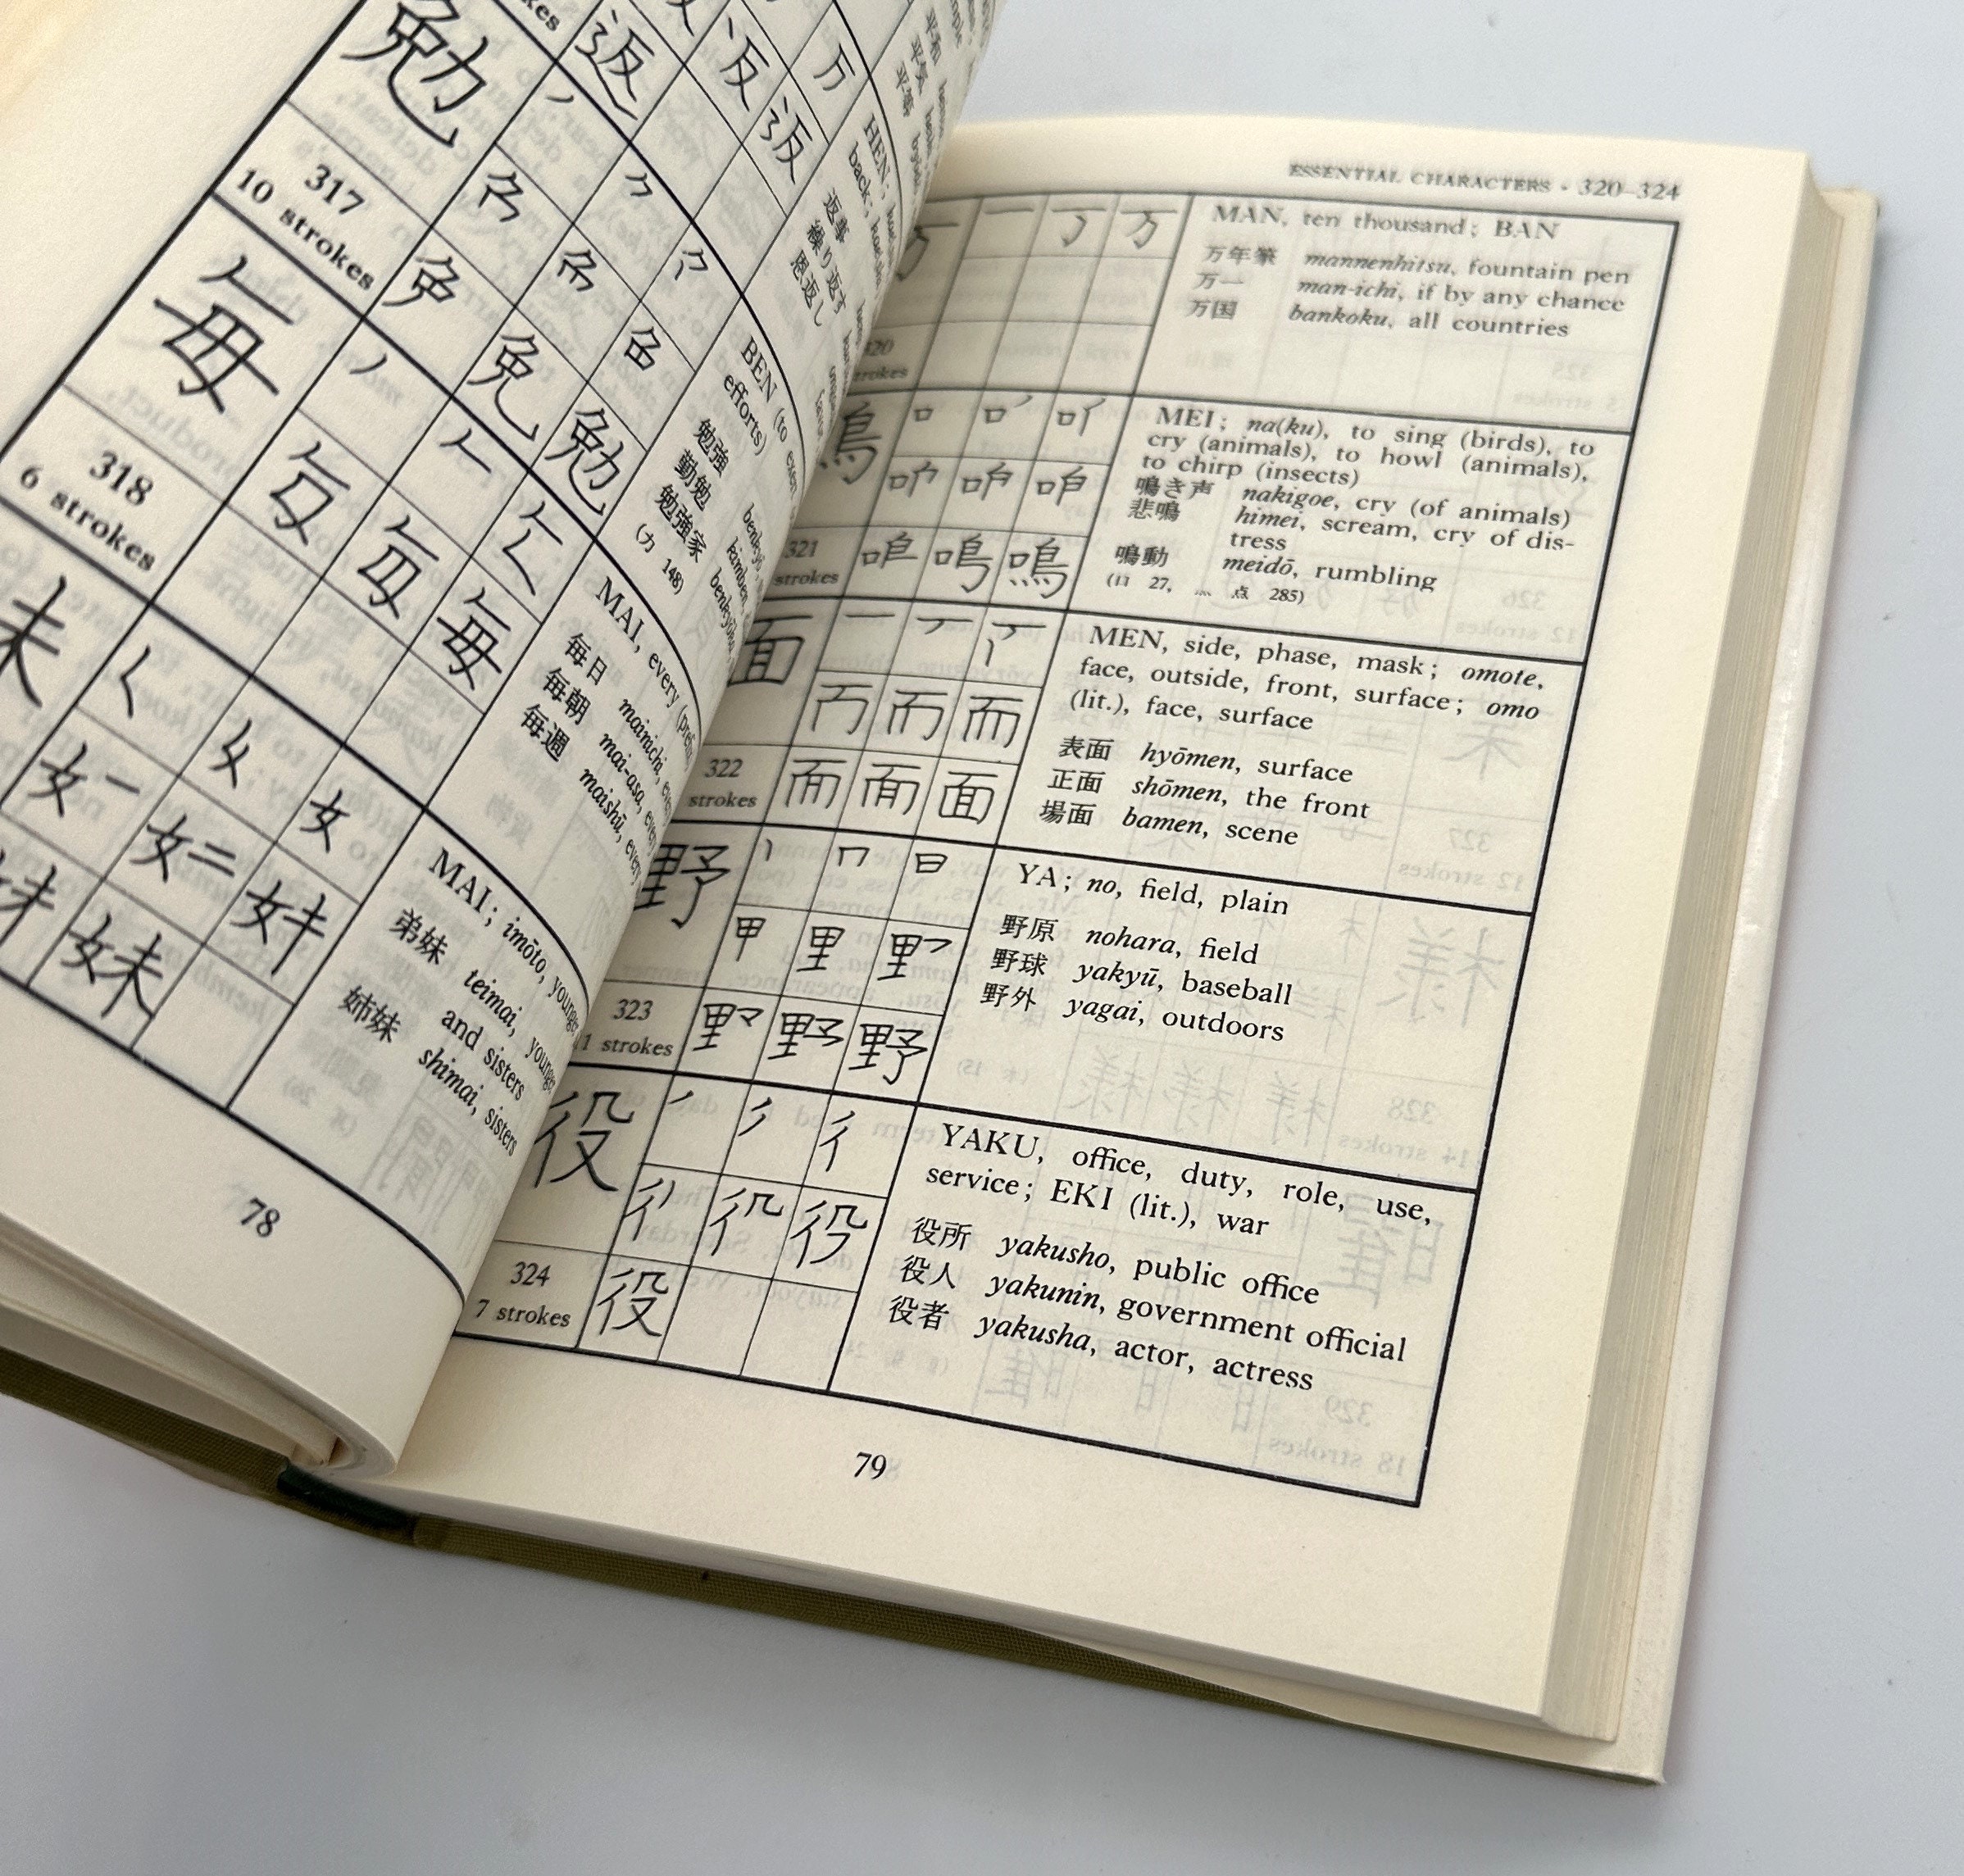 返
HEN;
返事
繰り返す
恩返し
勉
317
10 strokes
BEN (to exert
efforts)
勉強
勤勉
勉強家
(力 148)
毎
318
6 strokes
MAI, every (prefix)
毎日 mainichi,
毎朝 mai-asa, every
毎週 maishū, every
MAI; imōto, younger
弟妹 teimai, younger
and sisters
姉妹 shimai, sisters
78
ESSENTIAL CHARACTERS • 320–324
万
320
strokes
MAN, ten thousand; BAN
万年筆 mannenhitsu, fountain pen
万一 man-ichi, if by any chance
万国 bankoku, all countries
321
strokes
MEI; na(ku), to sing (birds), to
cry (animals), to howl (animals),
to chirp (insects)
鳴き声 nakigoe, cry (of animals)
悲鳴 himei, scream, cry of dis-
tress
鳴動 meidō, rumbling
(口 27, 灬 点 285)
面
322
strokes
MEN, side, phase, mask; omote,
face, outside, front, surface; omo
(lit.), face, surface
表面 hyōmen, surface
正面 shōmen, the front
場面 bamen, scene
野
323
1 strokes
YA; no, field, plain
野原 nohara, field
野球 yakyū, baseball
野外 yagai, outdoors
役
324
7 strokes
YAKU, office, duty, role, use,
service; EKI (lit.), war
役所 yakusho, public office
役人 yakunin, government official
役者 yakusha, actor, actress
79